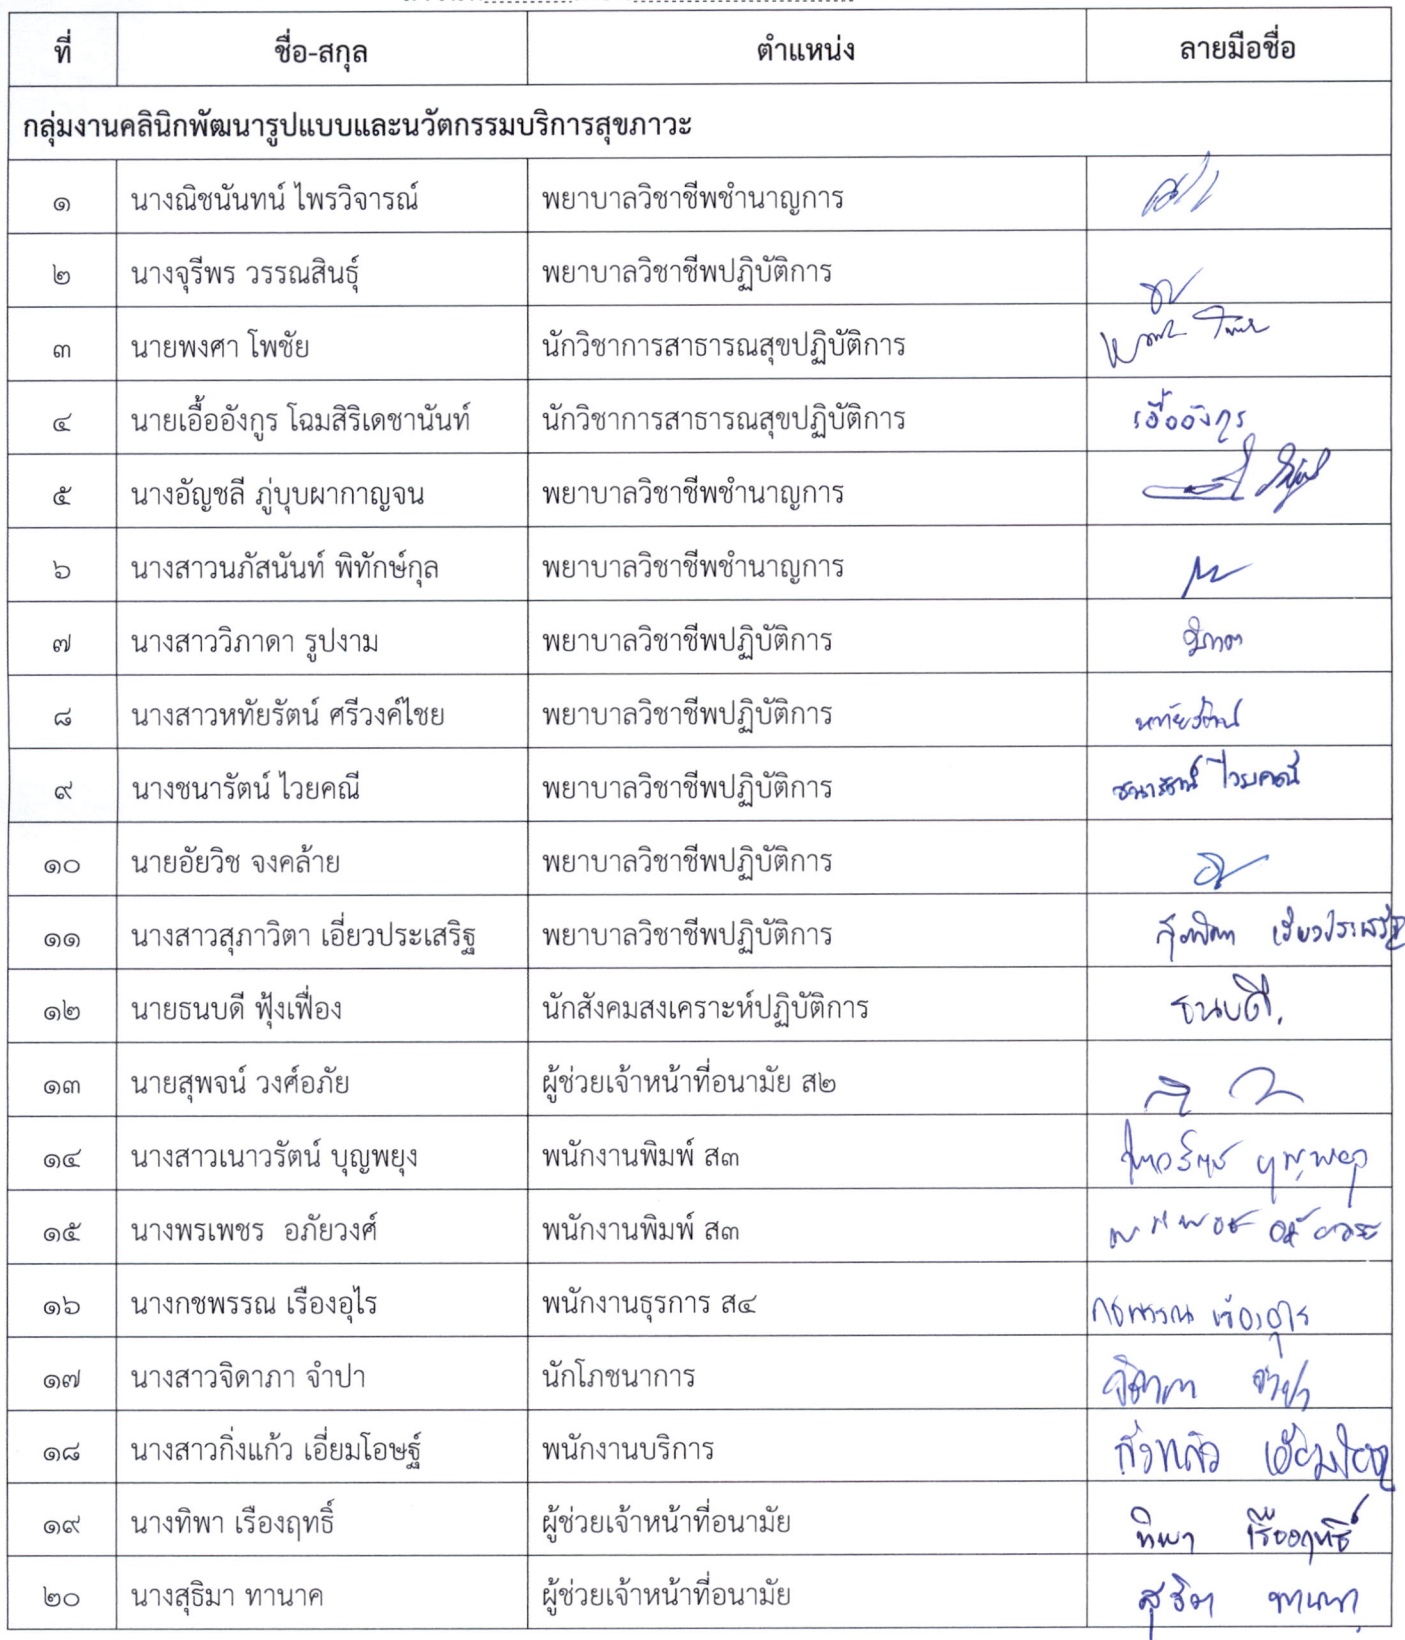 ที่ ชื่อ-สกุล ตำแหน่ง ลายมือชื่อ
กลุ่มงานคลินิกพัฒนารูปแบบและนวัตกรรมบริการสุขภาวะ
๑ นางณิชนันทน์ ไพรวิจารณ์ พยาบาลวิชาชีพชำนาญการ
๒ นางจุรีพร วรรณสินธุ์ พยาบาลวิชาชีพปฏิบัติการ
๓ นายพงศา โพชัย นักวิชาการสาธารณสุขปฏิบัติการ
๔ นายเอื้ออังกูร โฉมสิริเดชานันท์ นักวิชาการสาธารณสุขปฏิบัติการ เอื้ออังกูร
๕ นางอัญชลี ภู่บุบผากาญจน พยาบาลวิชาชีพชำนาญการ
๖ นางสาวนภัสนันท์ พิทักษ์กุล พยาบาลวิชาชีพชำนาญการ
๗ นางสาววิภาดา รูปงาม พยาบาลวิชาชีพปฏิบัติการ วิภาดา
๘ นางสาวหทัยรัตน์ ศรีวงค์ไชย พยาบาลวิชาชีพปฏิบัติการ หทัยรัตน์
๙ นางชนารัตน์ ไวยคณี พยาบาลวิชาชีพปฏิบัติการ ชนารัตน์ ไวยคณี
๑๐ นายอัยวิช จงคล้าย พยาบาลวิชาชีพปฏิบัติการ
๑๑ นางสาวสุภาวิตา เอี่ยวประเสริฐ พยาบาลวิชาชีพปฏิบัติการ สุภาวิตา เอี่ยวประเสริฐ
๑๒ นายธนบดี ฟุ้งเฟื่อง นักสังคมสงเคราะห์ปฏิบัติการ ธนบดี.
๑๓ นายสุพจน์ วงศ์อภัย ผู้ช่วยเจ้าหน้าที่อนามัย ส๒
๑๔ นางสาวเนาวรัตน์ บุญพยุง พนักงานพิมพ์ ส๓ เนาวรัตน์ บุญพยุง
๑๕ นางพรเพชร อภัยวงศ์ พนักงานพิมพ์ ส๓
๑๖ นางกชพรรณ เรืองอุไร พนักงานธุรการ ส๔ กชพรรณ เรืองอุไร
๑๗ นางสาวจิดาภา จำปา นักโภชนาการ จิดาภา จำปา
๑๘ นางสาวกิ่งแก้ว เอี่ยมโอษฐ์ พนักงานบริการ กิ่งแก้ว เอี่ยมโอษฐ์
๑๙ นางทิพา เรืองฤทธิ์ ผู้ช่วยเจ้าหน้าที่อนามัย ทิพา เรืองฤทธิ์
๒๐ นางสุธิมา ทานาค ผู้ช่วยเจ้าหน้าที่อนามัย สุธิมา ทานาค